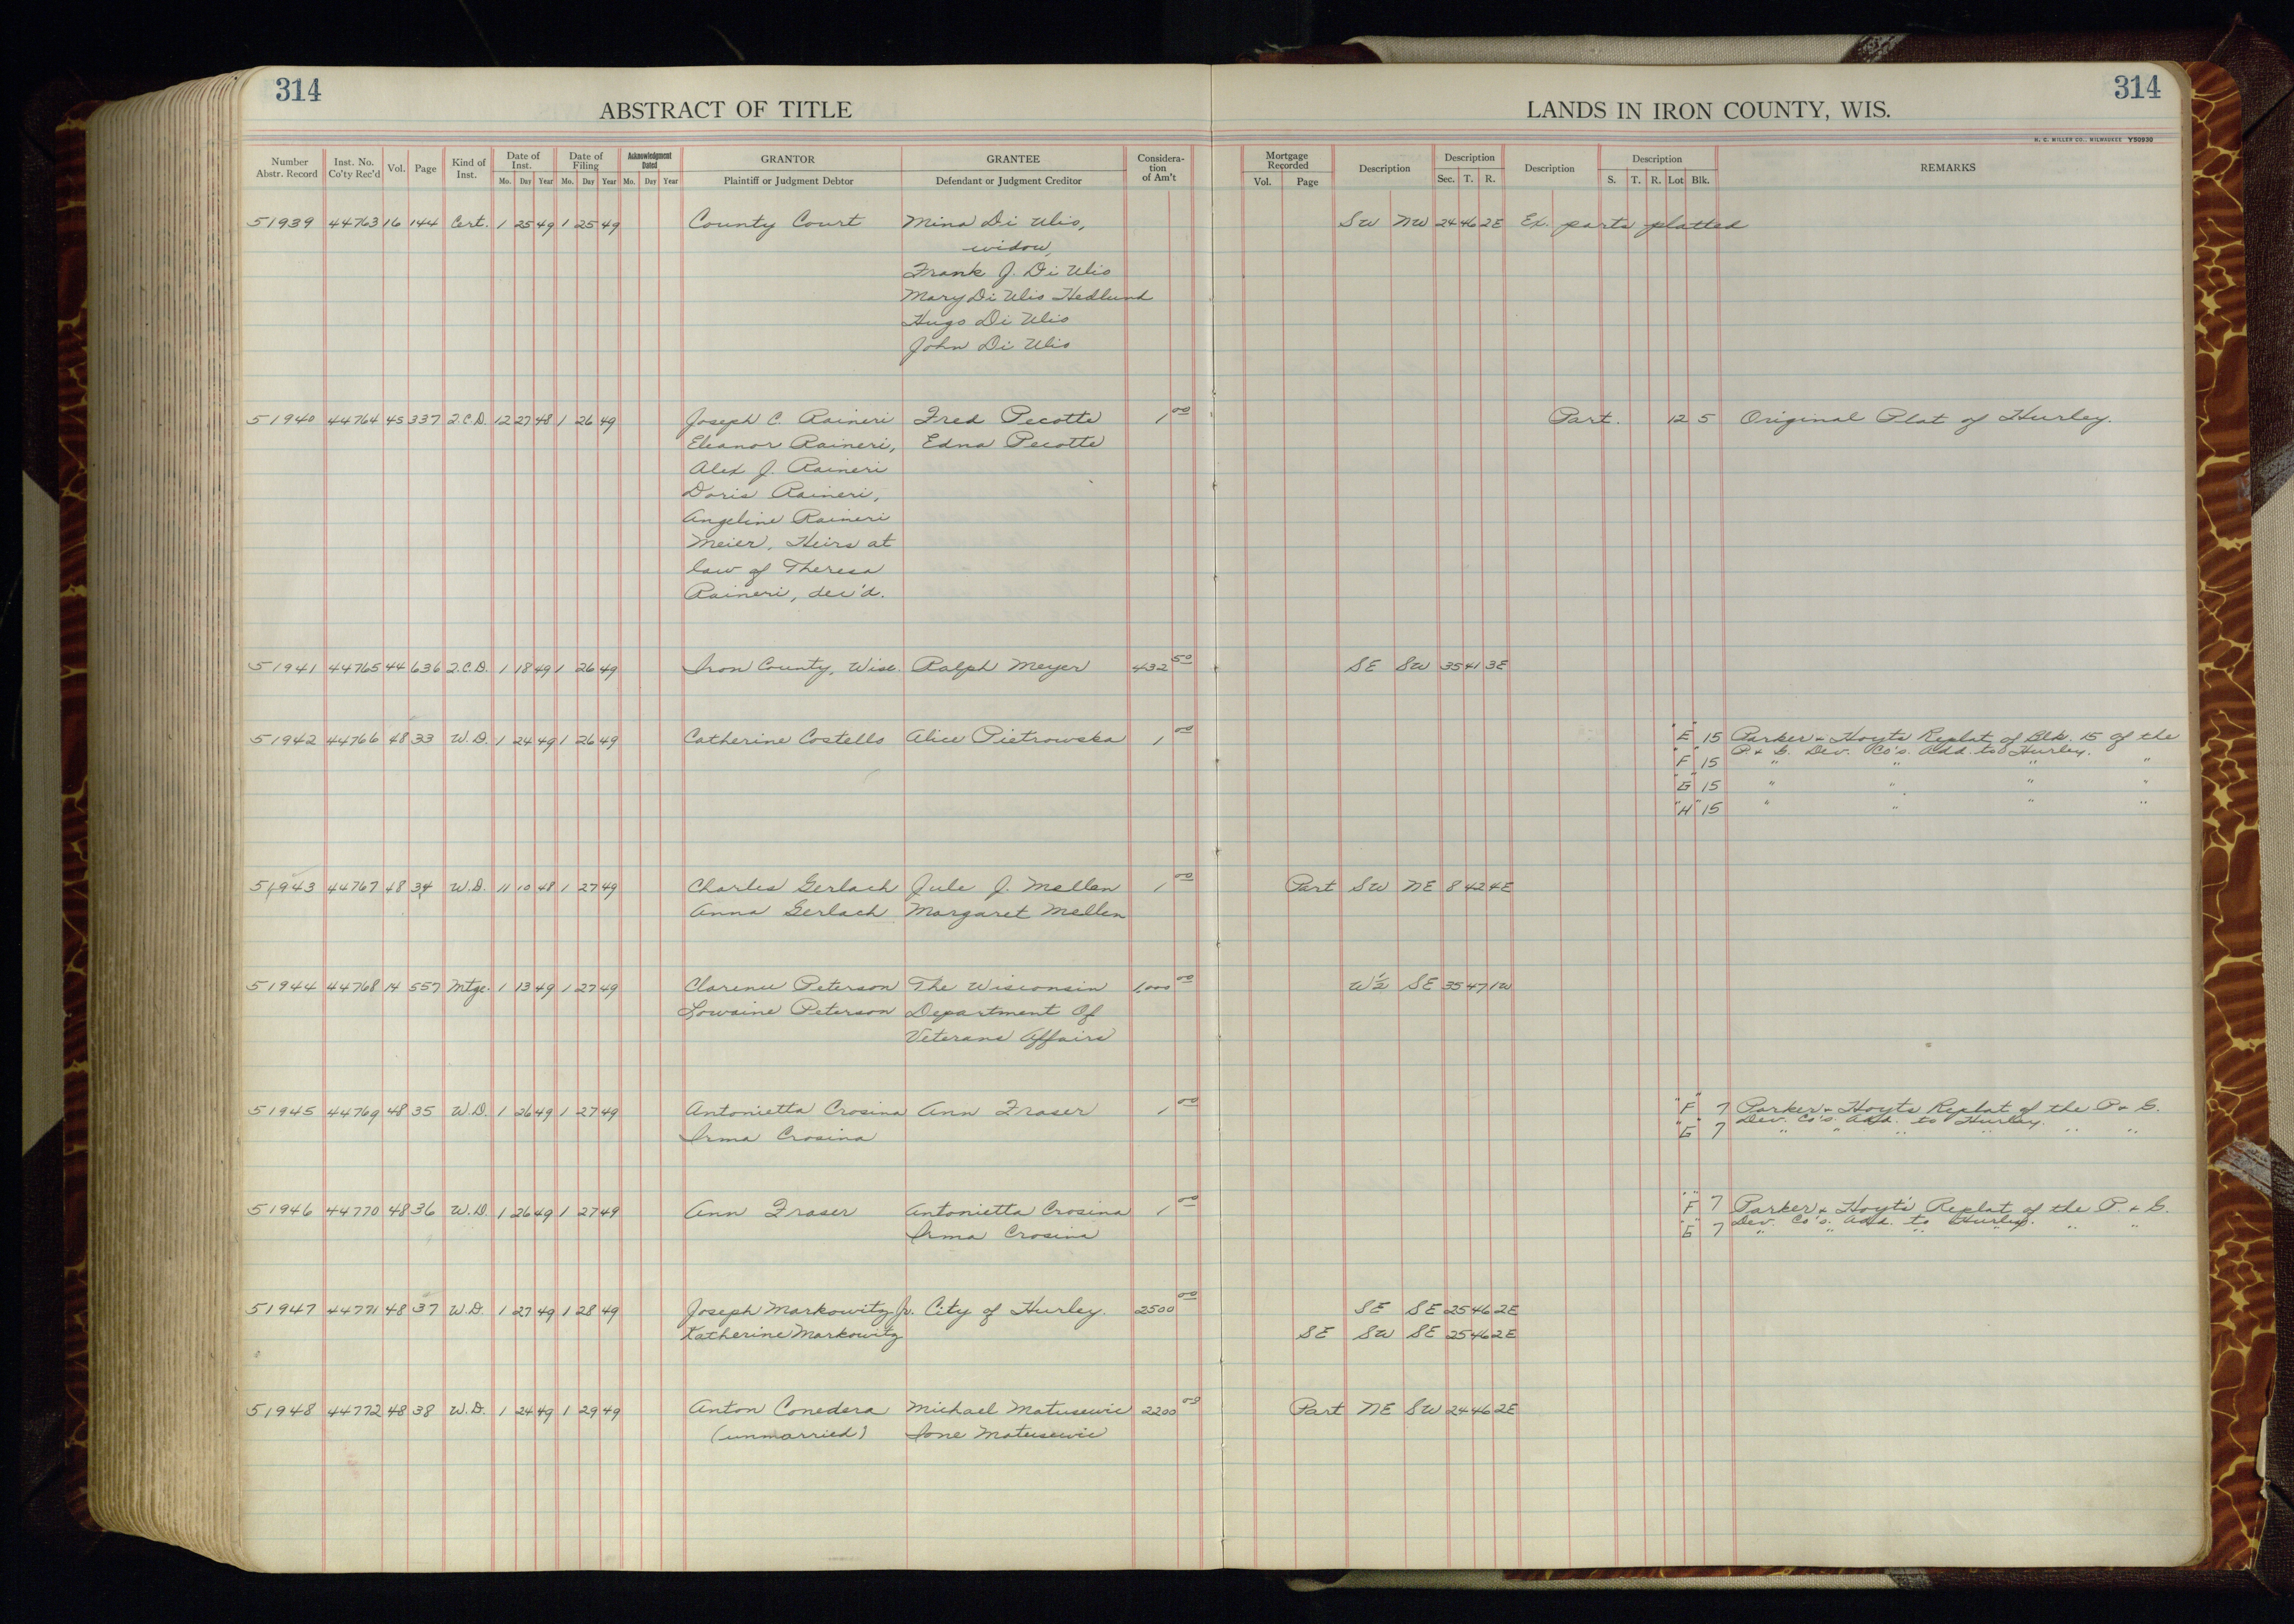 314
ABSTRACT OF TITLE
LANDS IN IRON COUNTY, WIS.
314
H. C. MILLER CO., MILWAUKEE Y50930
Number Abstr. Record | Inst. No. Co'ty Rec'd | Vol. | Page | Kind of Inst. | Date of Inst. Mo. Day Year | Date of Filing Mo. Day Year | Acknowledgment Dated Mo. Day Year | GRANTOR Plaintiff or Judgment Debtor | GRANTEE Defendant or Judgment Creditor | Consideration of Am't | Mortgage Recorded Vol. Page | Description | Description Sec. T. R. | Description | Description S. T. R. Lot Blk. | REMARKS
51939 44763 16 144 Cert. 1 25 49 1 25 49 County Court Mina Di Ulio, SW NW 24 46 2E Ex. parts platted
widow
Frank J. Di Ulio
Mary Di Ulio Hedlund
Hugo Di Ulio
John Di Ulio
51940 44764 45 337 Q.C.D. 12 27 48 1 26 49 Joseph C. Raineri Fred Pecotte 1 00 Part. 12 5 Original Plat of Hurley.
Eleanor Raineri, Edna Pecotte
Alex J. Raineri
Doris Raineri,
Angeline Raineri
Meier, Heirs at
law of Theresa
Raineri, dec'd.
51941 44765 44 636 Q.C.D. 1 18 49 1 26 49 Iron County, Wisc. Ralph Meyer 432 50 SE SW 35 41 3E
51942 44766 48 33 W.D. 1 24 49 1 26 49 Catherine Costello Alice Pietrowska 1 00 "E" 15 Parker & Hoyt's Replat of Blk. 15 of the
P. & G. Dev. Co's. Add. to Hurley.
"F" 15 " " " "
"G" 15 " " " "
"H" 15 " " " "
51943 44767 48 34 W.D. 11 10 48 1 27 49 Charles Gerlach Jule J. Mellen 1 00 Part SW NE 8 42 4E
Anna Gerlach Margaret Mellen
51944 44768 14 557 Mtge. 1 13 49 1 27 49 Clarence Peterson The Wisconsin 1,000 00 W½ SE 35 47 1W
Lorraine Peterson Department Of
Veterans Affairs
51945 44769 48 35 W.D. 1 26 49 1 27 49 Antonietta Crosina Ann Fraser 1 00 "F" 7 Parker & Hoyt's Replat of the P. & G.
Dev. Co's. Add. to Hurley.
Irma Crosina "G" 7 " " " " " "
51946 44770 48 36 W.D. 1 26 49 1 27 49 Ann Fraser Antonietta Crosina 1 00 "F" 7 Parker & Hoyt's Replat of the P. & G.
Dev. Co's. Add. to Hurley.
Irma Crosina "G" 7 " " " " " "
51947 44771 48 37 W.D. 1 27 49 1 28 49 Joseph Markowitz Jr. City of Hurley. 2500 00 SE SE 25 46 2E
Katherine Markowitz SE SW SE 25 46 2E
51948 44772 48 38 W.D. 1 24 49 1 29 49 Anton Conedera Michael Matusewic 2200 00 Part NE SW 24 46 2E
(unmarried) Ione Matusewic